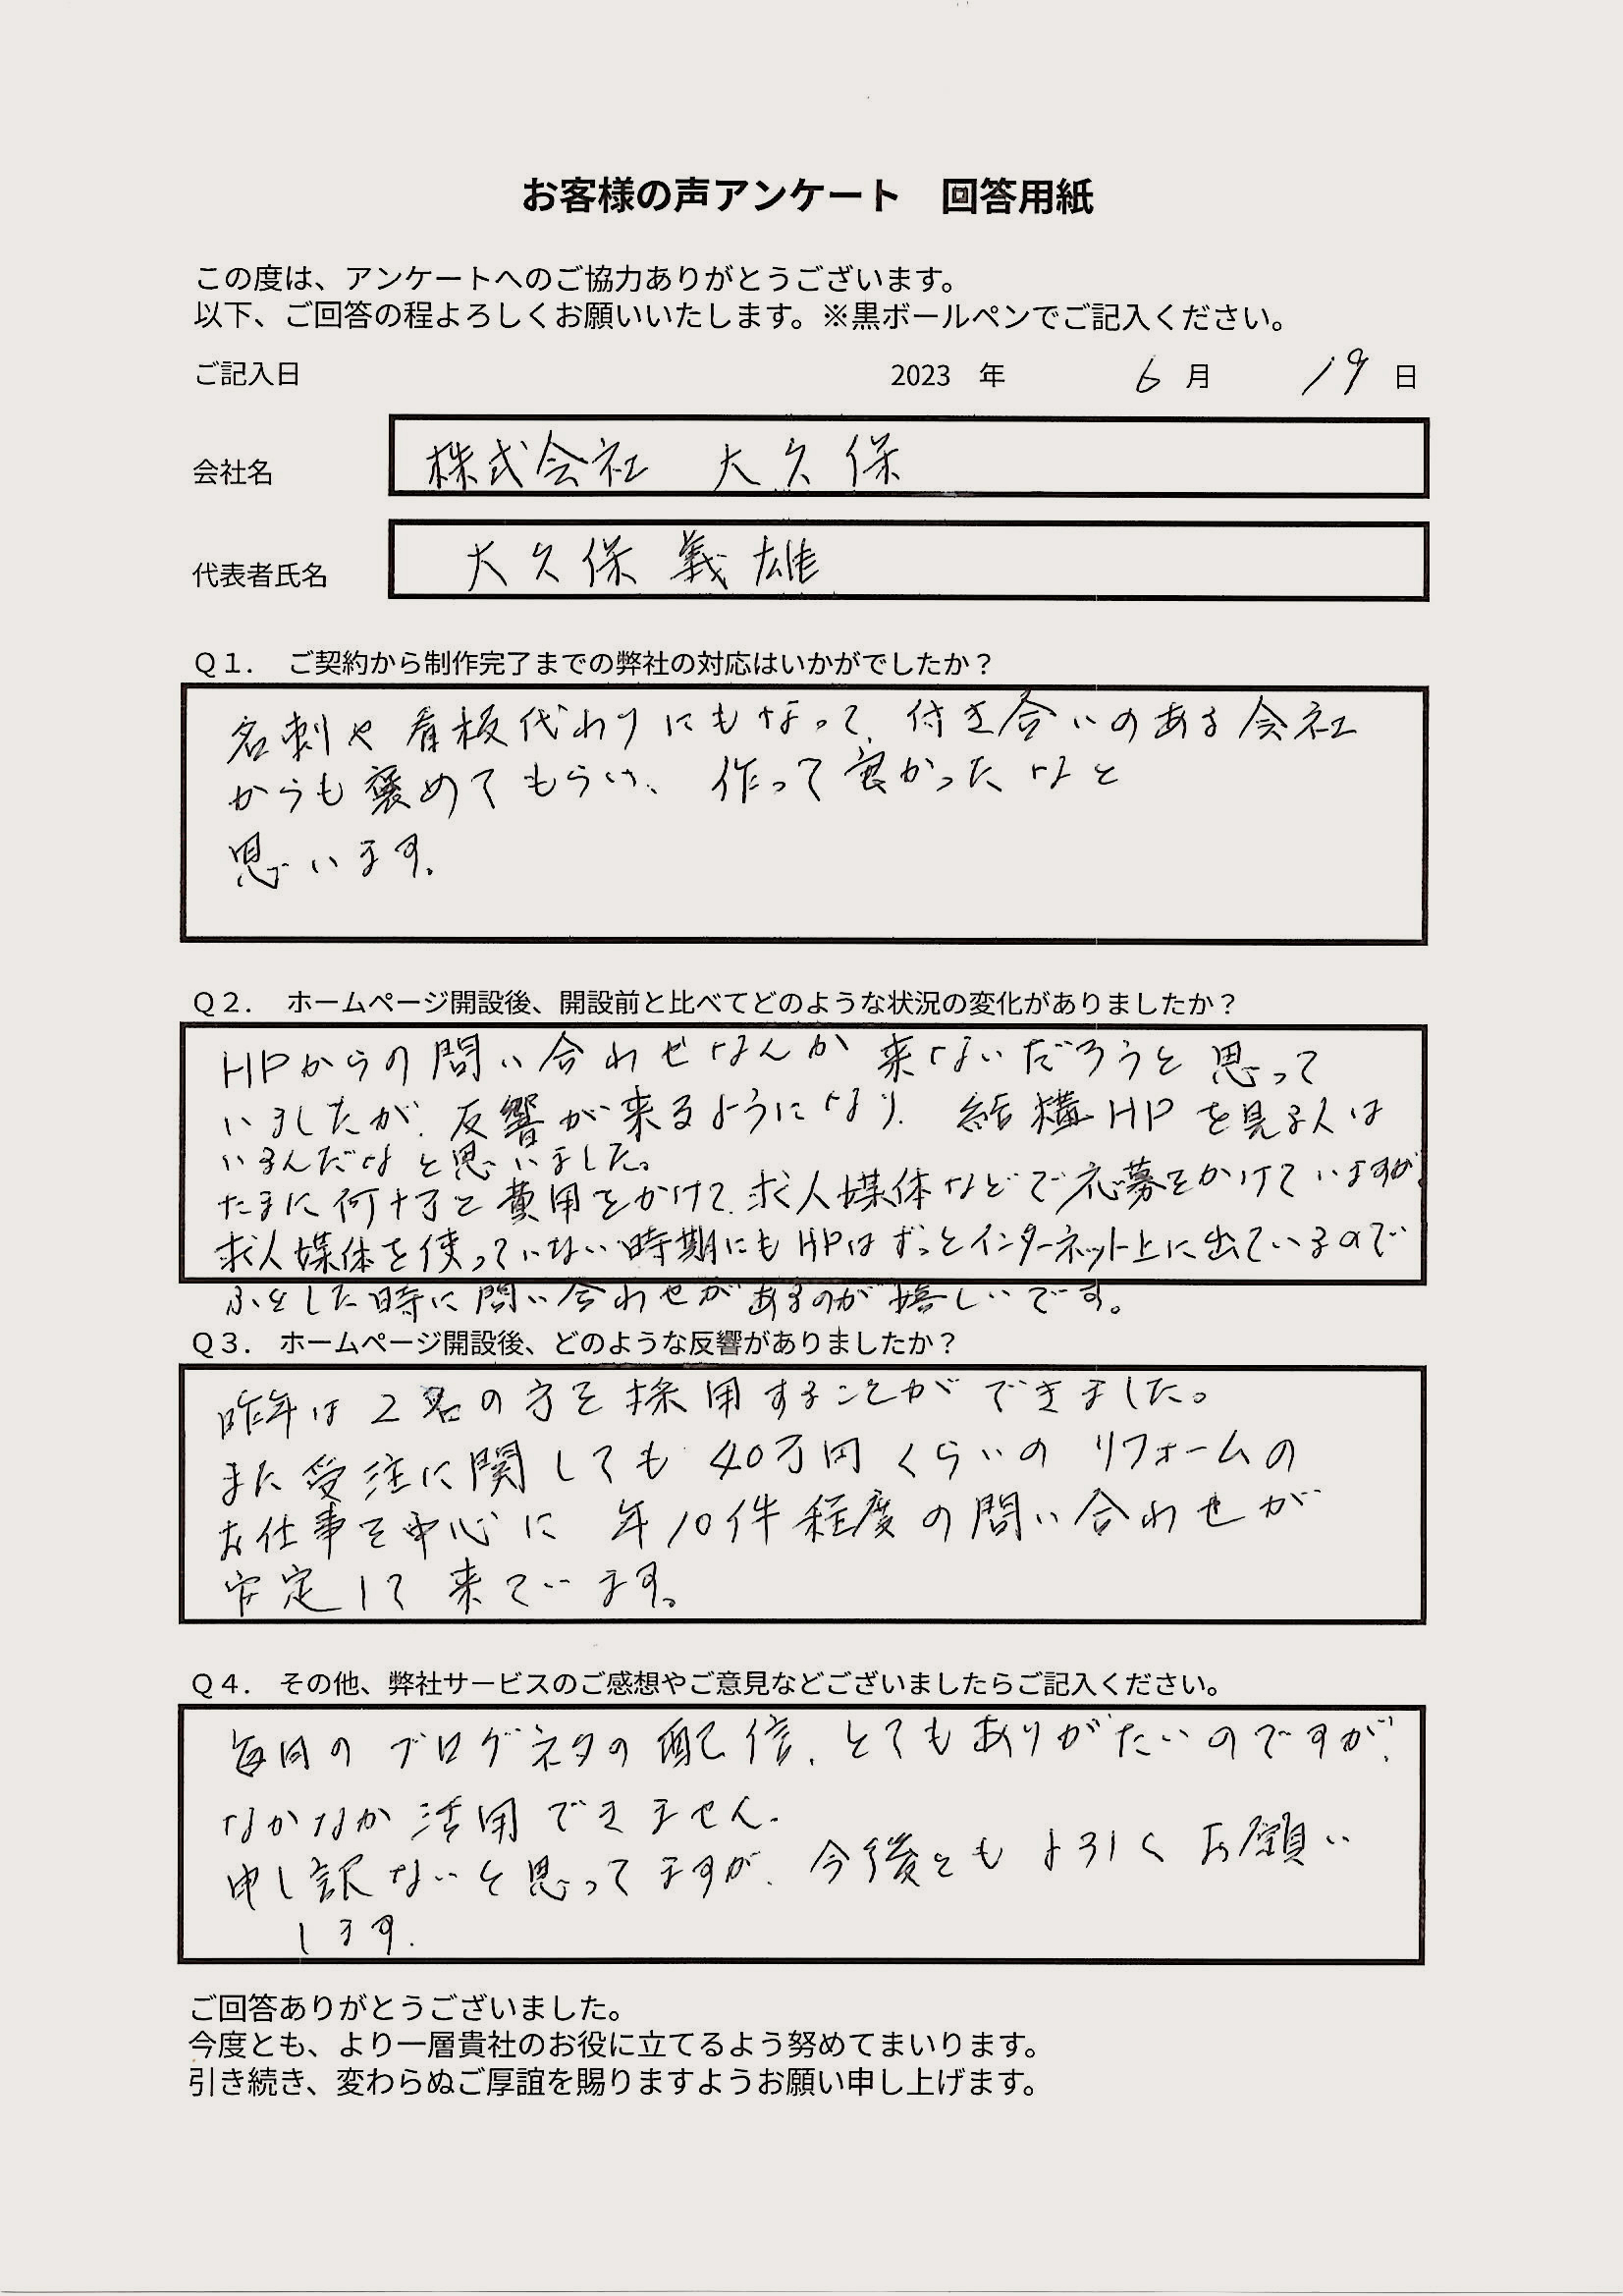 お客様の声アンケート　回答用紙
この度は、アンケートへのご協力ありがとうございます。
以下、ご回答の程よろしくお願いいたします。※黒ボールペンでご記入ください。
ご記入日　2023　年　6　月　19　日
会社名　株式会社　大久保
代表者氏名　大久保 義雄
Ｑ１.　ご契約から制作完了までの弊社の対応はいかがでしたか？
名刺や看板代わりにもなって、付き合いのある会社
からも褒めてもらい、作って良かったなと
思います。
Ｑ２.　ホームページ開設後、開設前と比べてどのような状況の変化がありましたか？
HPからの問い合わせなんか来ないだろうと思って
いましたが、反響が来るようになり、結構HPを見る人は
いるんだなと思いました。
たまに何十万と費用をかけて、求人媒体などで応募をかけていますが、
求人媒体を使っていない時期にもHPはずっとインターネット上に出ているので
ふとした時に問い合わせがあるのが嬉しいです。
Ｑ３.　ホームページ開設後、どのような反響がありましたか？
昨年は2名の方を採用することができました。
また受注に関しても40万円くらいのリフォームの
お仕事を中心に年10件程度の問い合わせが
安定して来ています。
Ｑ４.　その他、弊社サービスのご感想やご意見などございましたらご記入ください。
毎日のブログネタの配信、とてもありがたいのですが、
なかなか活用できません。
申し訳ないと思ってますが、今後ともよろしくお願い
します。
ご回答ありがとうございました。
今度とも、より一層貴社のお役に立てるよう努めてまいります。
引き続き、変わらぬご厚誼を賜りますようお願い申し上げます。